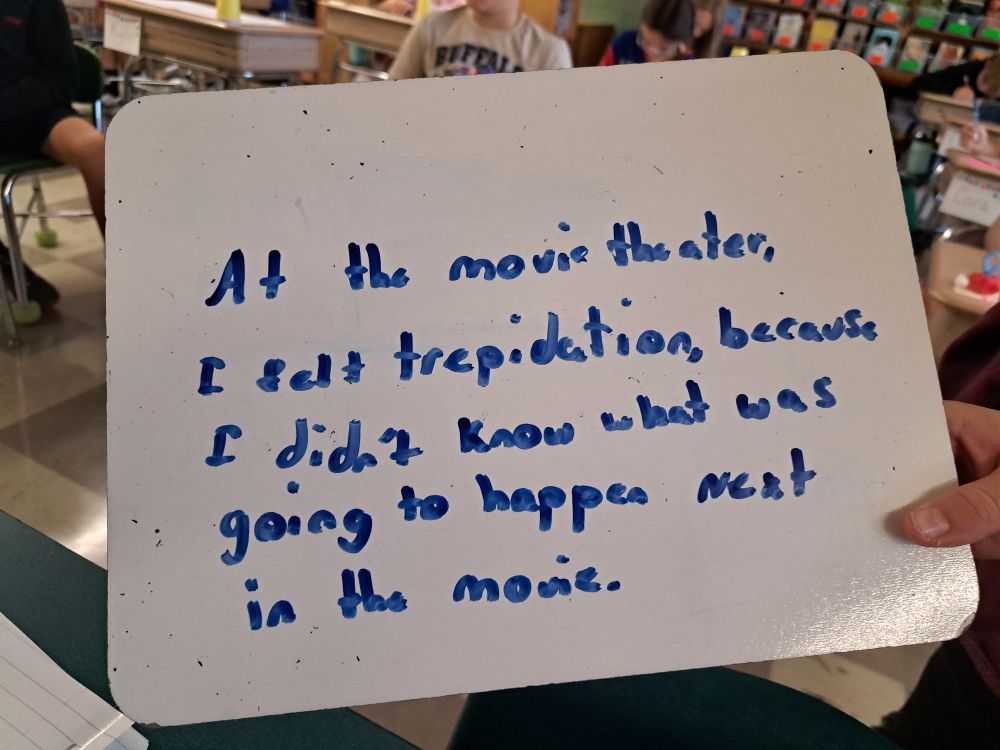 BUFFALO
At the movie theater,
I felt trepidation, because
I didn't know what was
going to happen next
in the movie.